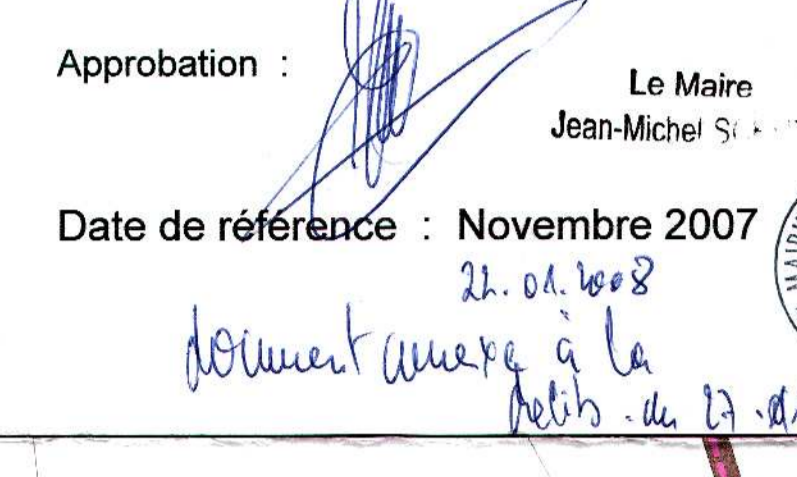 Approbation :
Le Maire
Jean-Michel
Date de référence : Novembre 2007
22.01.2008
document annexé à la
delib. du 27.01
MAIRIE